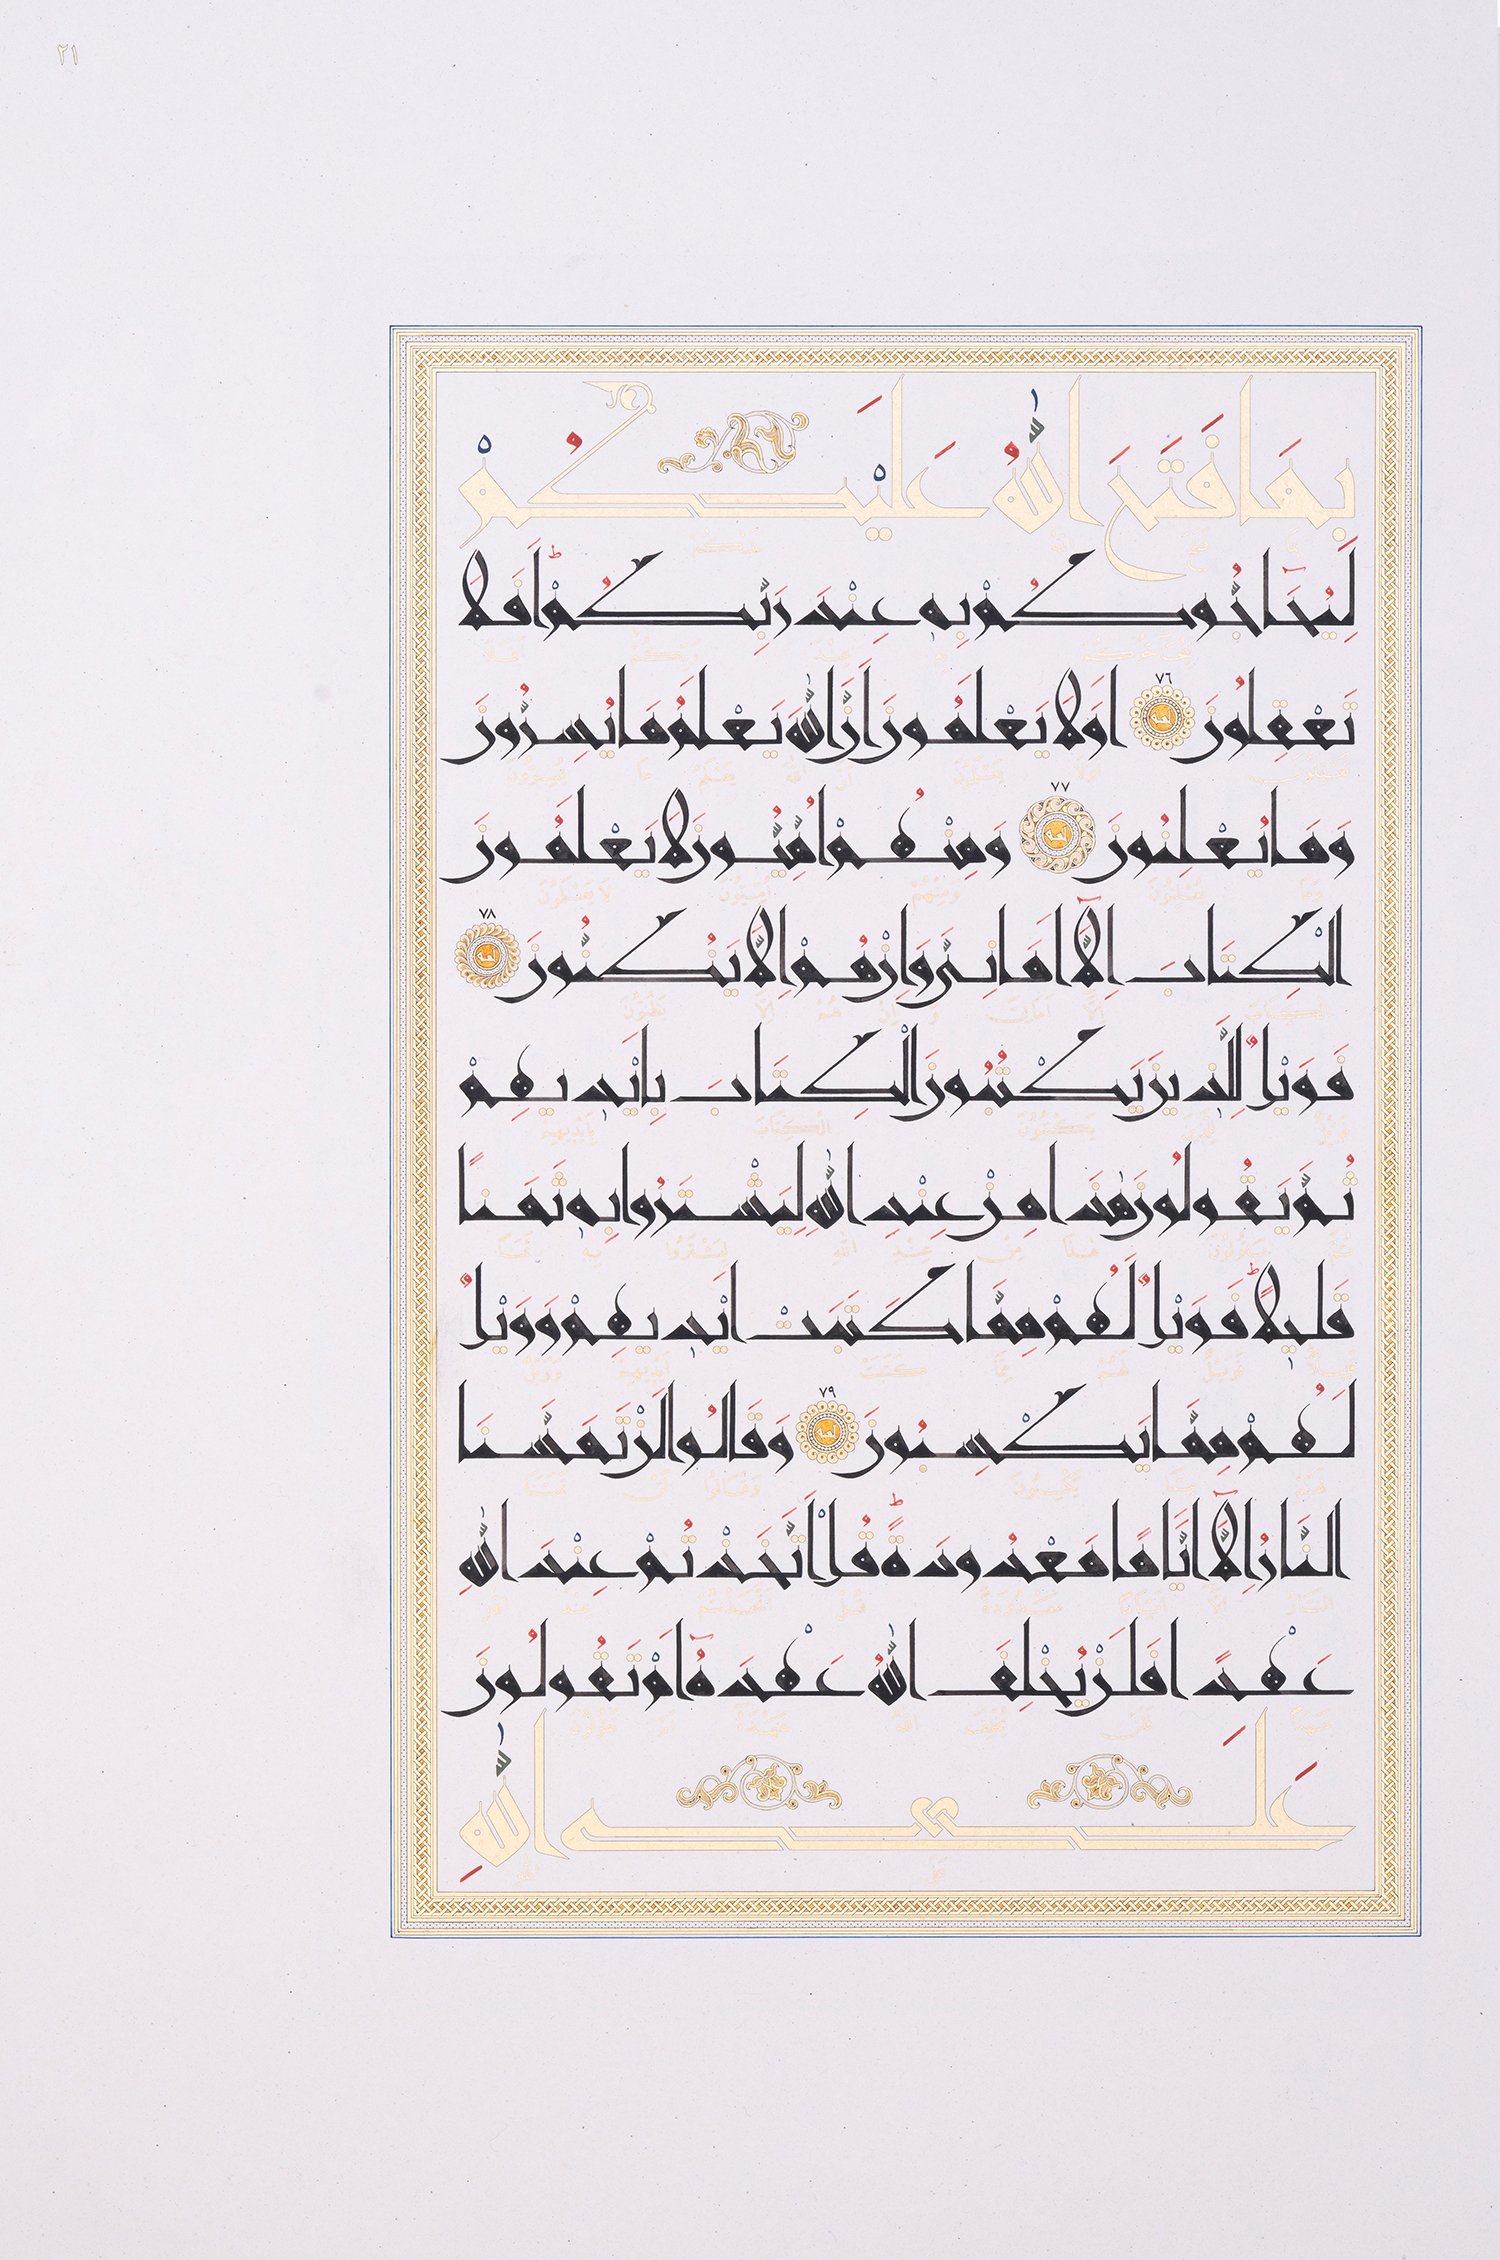 ٢١
بِمَا فَتَحَ اللّٰهُ عَلَيْكُمْ
لِيُحَآجُّوكُمْ بِهٖ عِنْدَ رَبِّكُمْؕ اَفَلَا
تَعْقِلُونَ ٧٦ اَوَلَا يَعْلَمُونَ اَنَّ اللّٰهَ يَعْلَمُ مَا يُسِرُّونَ
وَمَا يُعْلِنُونَ ٧٧ وَمِنْهُمْ اُمِّيُّونَ لَا يَعْلَمُونَ
الْكِتَابَ اِلَّٓا اَمَانِيَّ وَاِنْ هُمْ اِلَّا يَظُنُّونَ ٧٨
فَوَيْلٌ لِلَّذٖينَ يَكْتُبُونَ الْكِتَابَ بِاَيْدٖيهِمْ
ثُمَّ يَقُولُونَ هٰذَا مِنْ عِنْدِ اللّٰهِ لِيَشْتَرُوا بِهٖ ثَمَنًا
قَلٖيلًاؕ فَوَيْلٌ لَهُمْ مِمَّا كَتَبَتْ اَيْدٖيهِمْ وَوَيْلٌ
لَهُمْ مِمَّا يَكْسِبُونَ ٧٩ وَقَالُوا لَنْ تَمَسَّنَا
النَّارُ اِلَّٓا اَيَّامًا مَعْدُودَةًؕ قُلْ اَتَّخَذْتُمْ عِنْدَ اللّٰهِ
عَهْدًا فَلَنْ يُخْلِفَ اللّٰهُ عَهْدَهُٓ اَمْ تَقُولُونَ
عَلَى اللّٰهِ